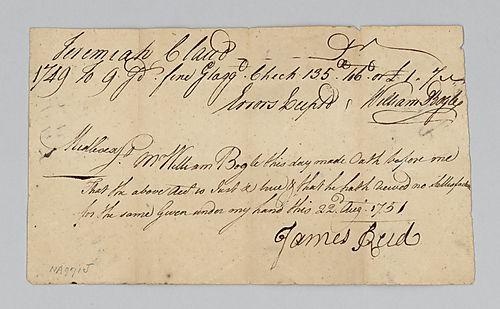 Jeremiah Claud Dr
1749 To 9 Yd fine Check 135 Tobo or £1
Errors Excepted William Bogle
Middlesex Sc. Mr William Bogle this day made Oath before me
That the above Acct is Just & true & that he hath received no Satisfaction
for the same Given under my hand this 22d Augt 1751
James Reid